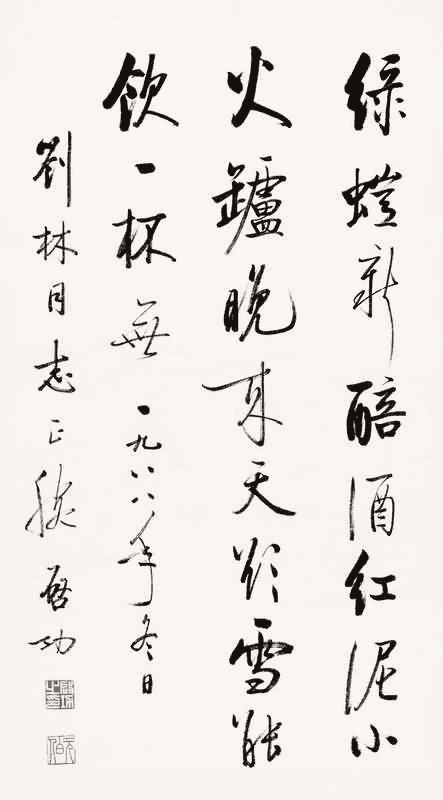 綠螘新醅酒紅泥小
火鑪晚来天欲雪能
飲一杯無 一九八八年冬日
劉林同志正腕 啓功